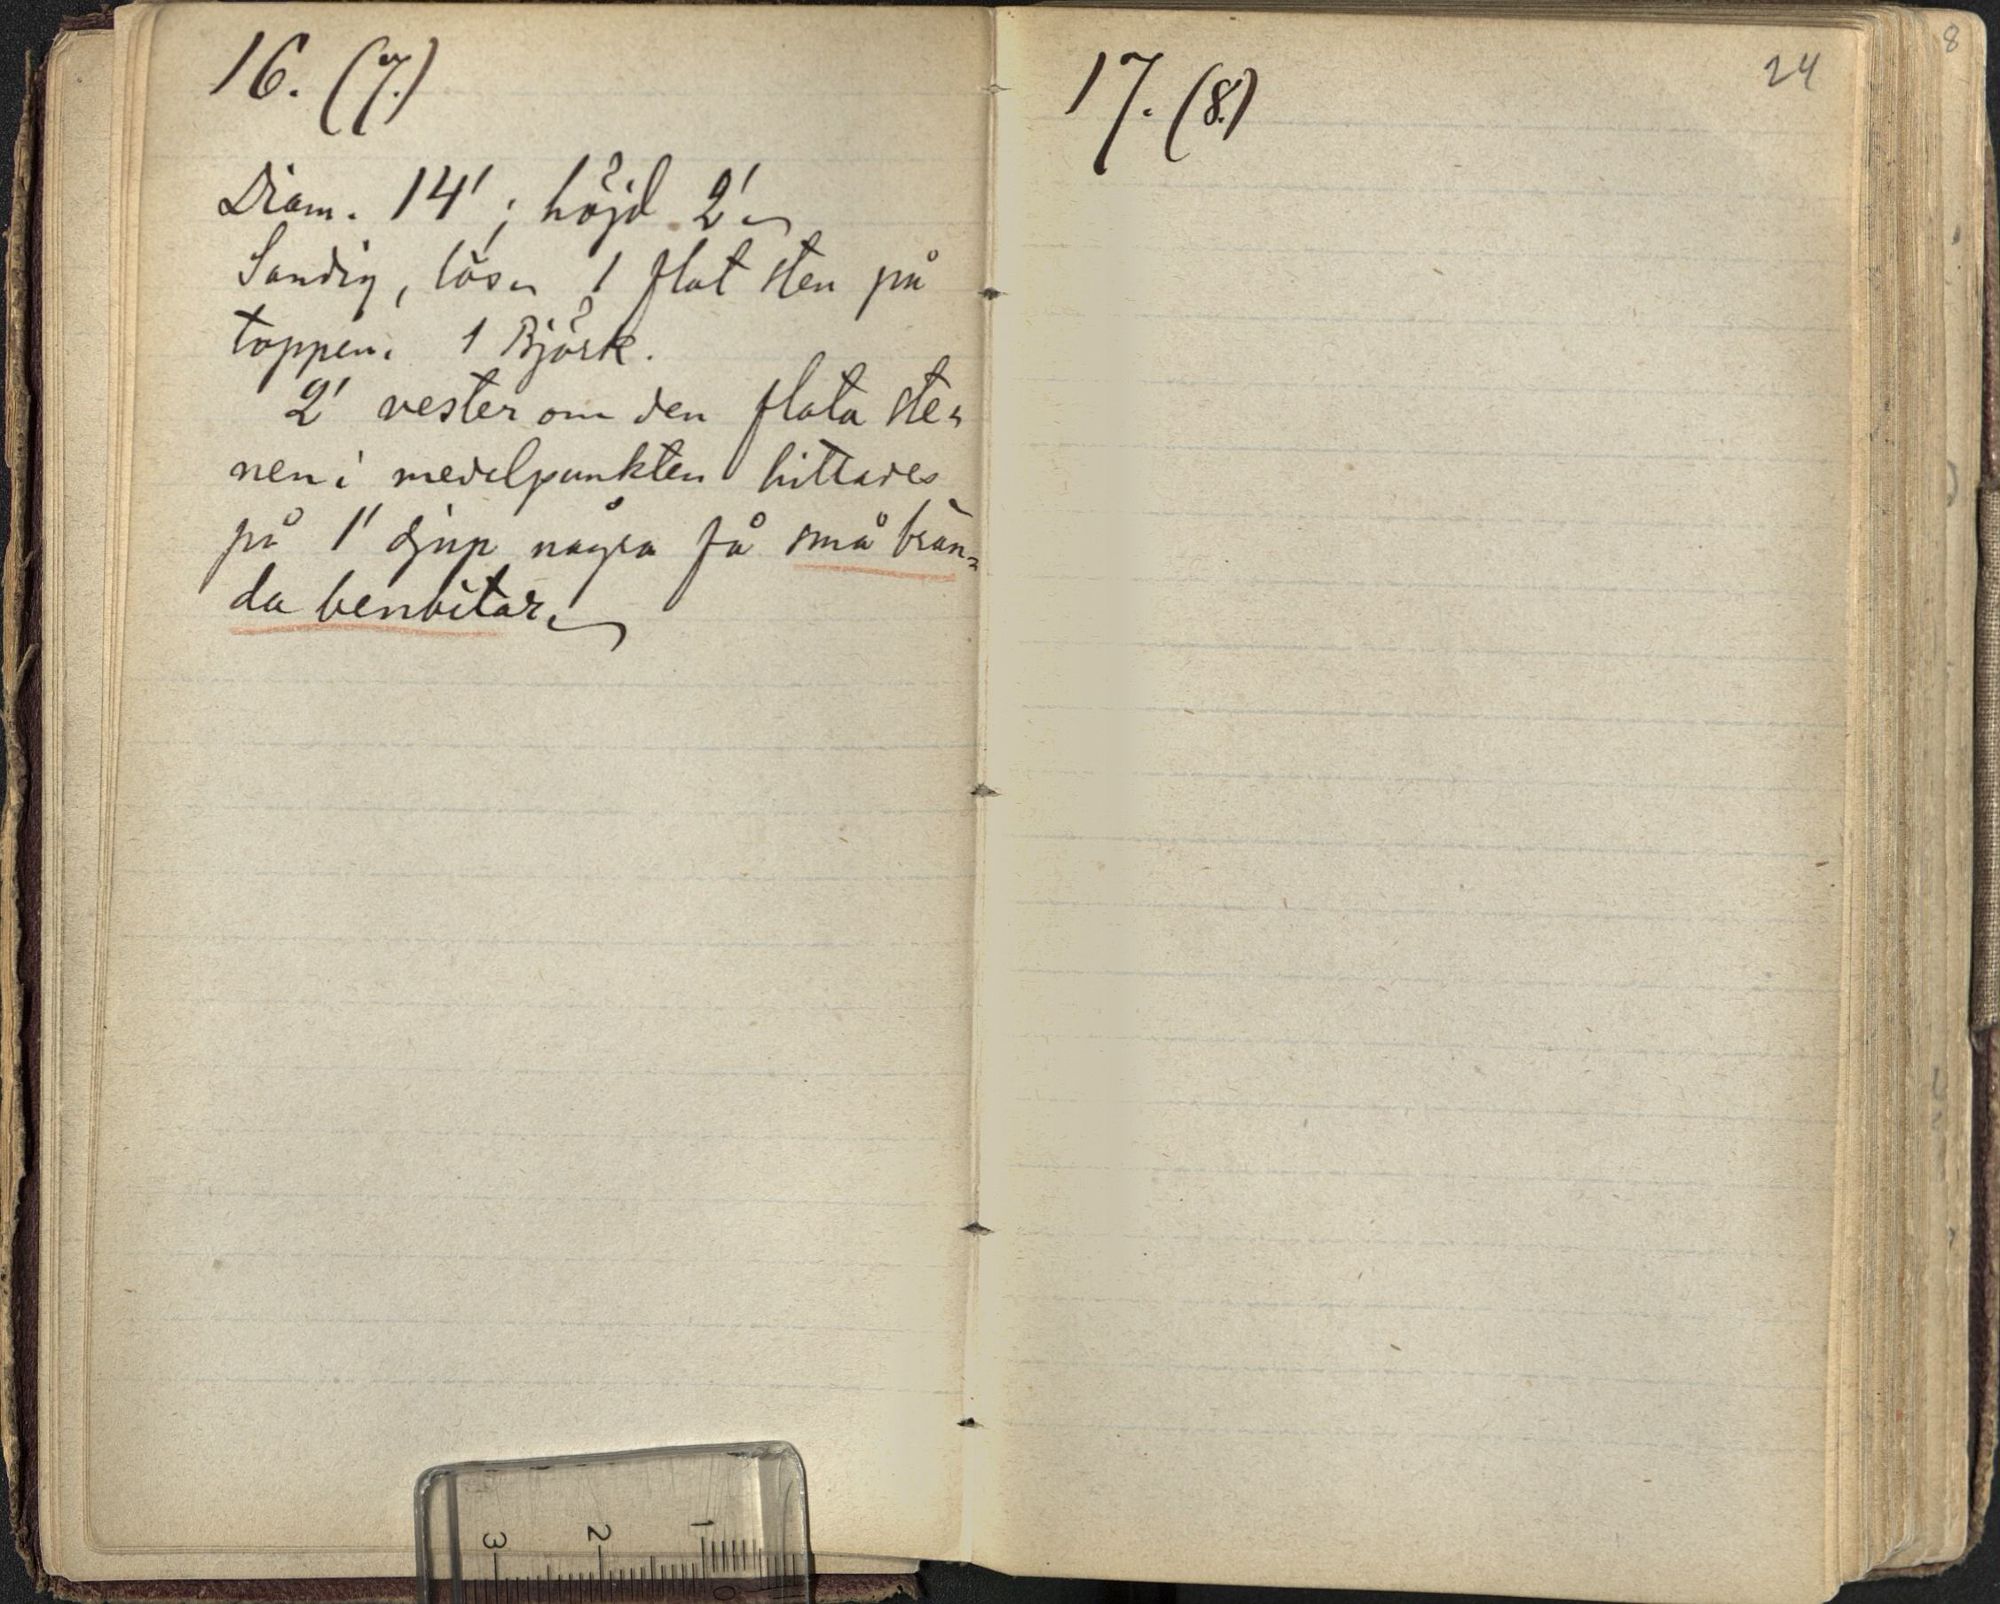 16. (7.)
Diam. 14'; höjd 2'.
Sandig, lös. 1 flat sten på
toppen. 1 Björk.
2' vester om den flata ste-
nen i medelpunkten hittades
på 1' djup några få små brän-
da benbitar.
17. (8.)
24
8
3 2 1 0